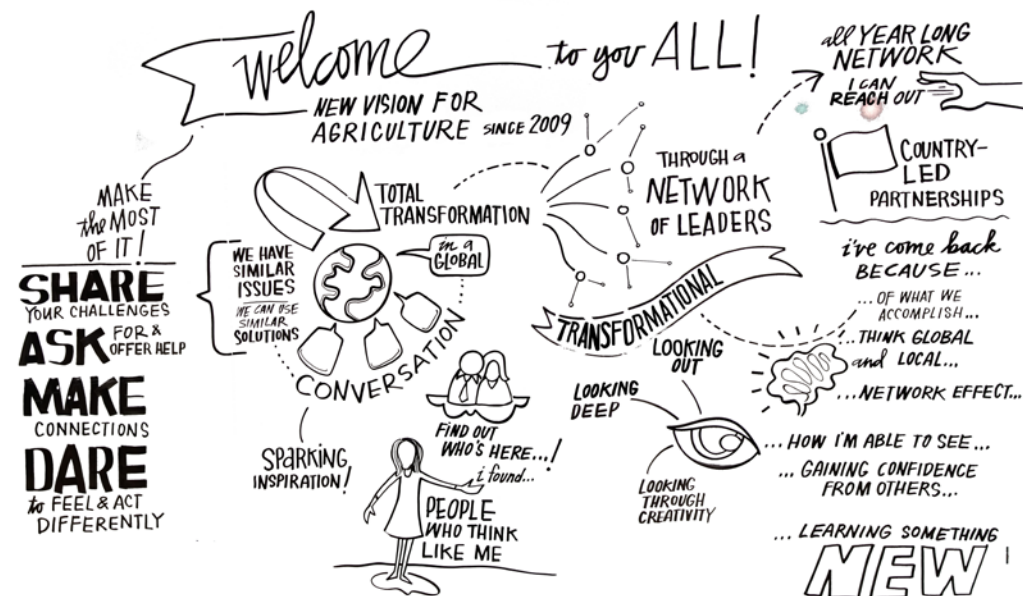 welcome to you ALL!
NEW VISION FOR
AGRICULTURE SINCE 2009
MAKE
the MOST
OF IT!
SHARE
YOUR CHALLENGES
ASK FOR &
OFFER HELP
MAKE
CONNECTIONS
DARE
to FEEL & ACT
DIFFERENTLY
TOTAL
TRANSFORMATION
WE HAVE
SIMILAR
ISSUES
WE CAN USE
SIMILAR
SOLUTIONS
in a
GLOBAL
CONVERSATION
SPARKING
INSPIRATION!
FIND OUT
WHO'S HERE...!
i found...
PEOPLE
WHO THINK
LIKE ME
THROUGH a
NETWORK
OF LEADERS
TRANSFORMATIONAL
LOOKING
OUT
LOOKING
DEEP
LOOKING
THROUGH
CREATIVITY
all YEAR LONG
NETWORK
I CAN
REACH OUT
COUNTRY-
LED
PARTNERSHIPS
i've come back
BECAUSE...
...OF WHAT WE
ACCOMPLISH...
...THINK GLOBAL
and LOCAL...
...NETWORK EFFECT...
...HOW I'M ABLE TO SEE...
...GAINING CONFIDENCE
FROM OTHERS...
...LEARNING SOMETHING
NEW